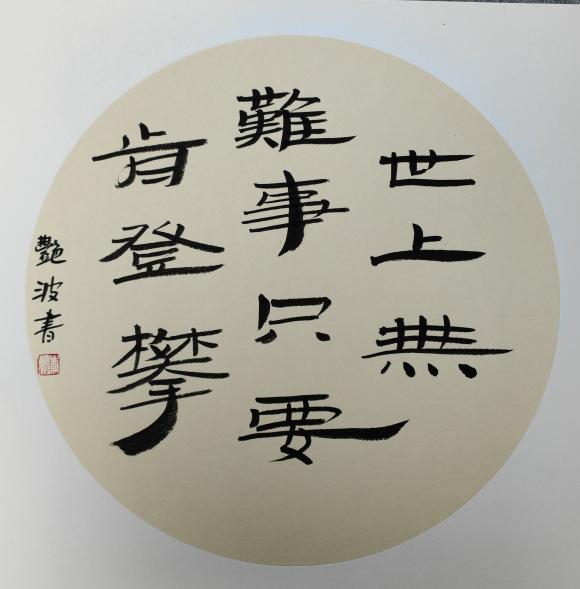 世上無
難事只要
肯登攀
艷波書